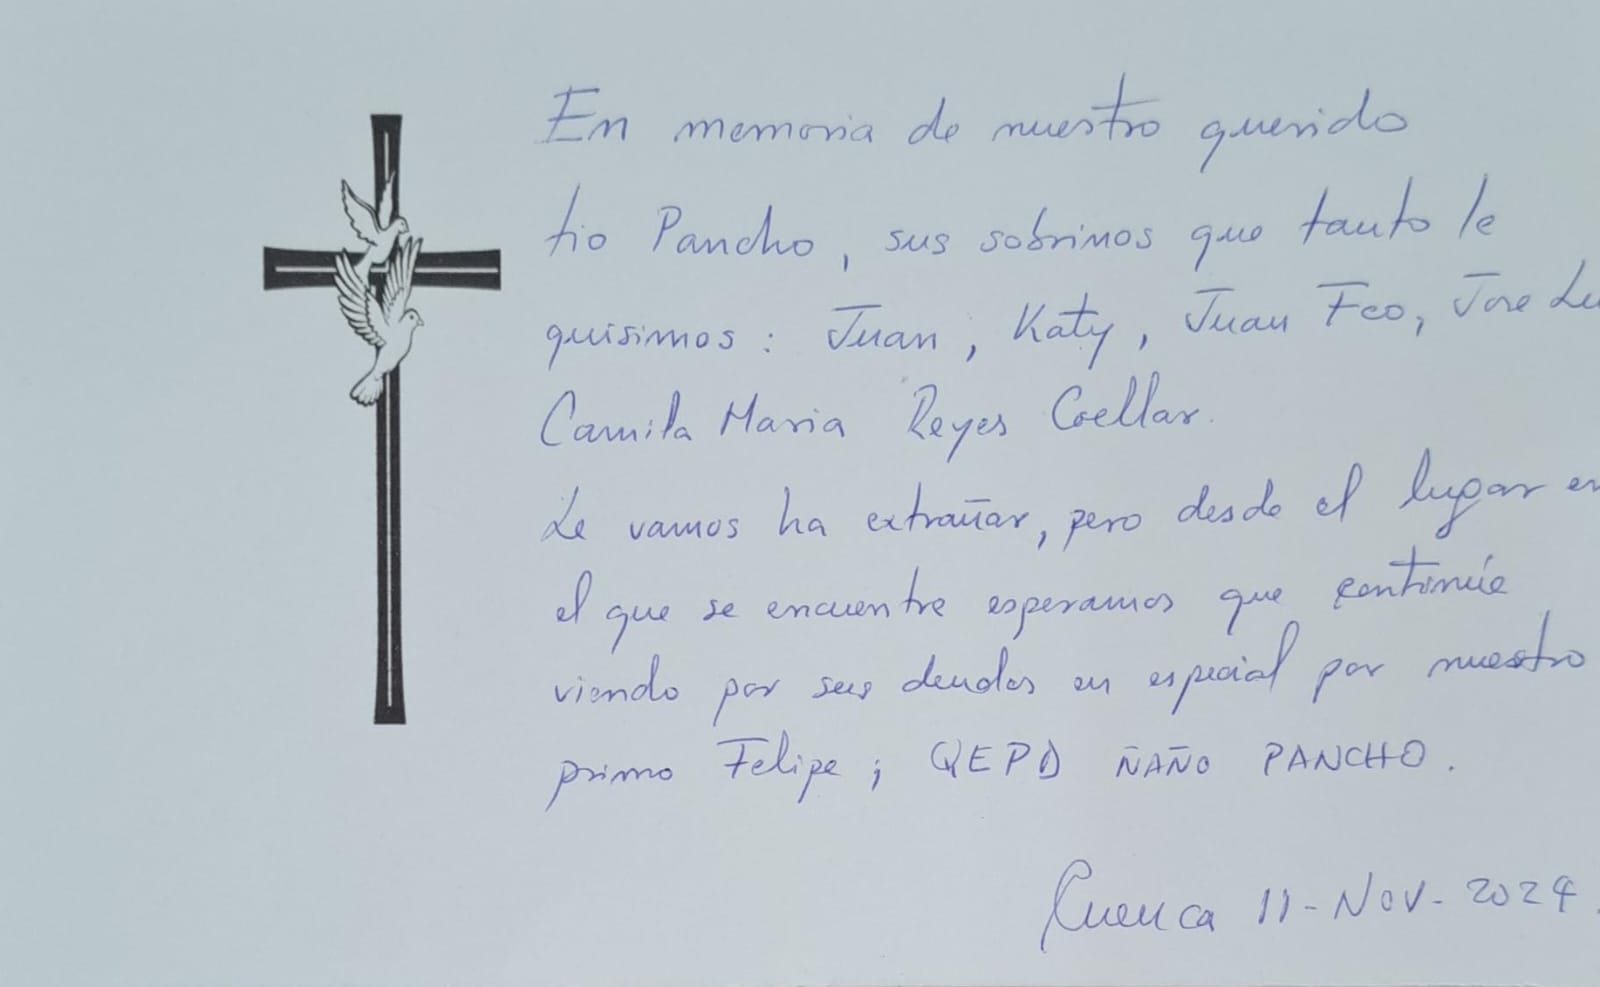 En memoria de nuestro querido
tio Pancho, sus sobrinos que tanto le
quisimos: Juan, Katy, Juan Fco, Jose Lu
Camila Maria Reyes Coellar.
Le vamos ha extrañar, pero desde el lugar en
el que se encuentre esperamos que continúe
viendo por sus deudos en especial por nuestro
primo Felipe; QEPD ÑAÑO PANCHO.
Cuenca 11-Nov-2024.